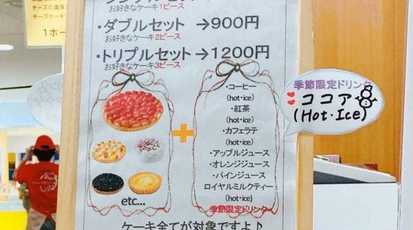 お好きなケーキ1ピース
・ダブルセット →900円
お好きなケーキ2ピース
・トリプルセット→1200円
お好きなケーキ3ピース
・コーヒー
(hot・ice)
・紅茶
(hot・ice)
・カフェラテ
(hot・ice)
・アップルジュース
・オレンジジュース
・パインジュース
ロイヤルミルクティー
(hot・ice)
季節限定ドリンク
+
etc...
ケーキ全てが対象ですよ♪
季節限定ドリンク
ココア
(Hot・Ice)